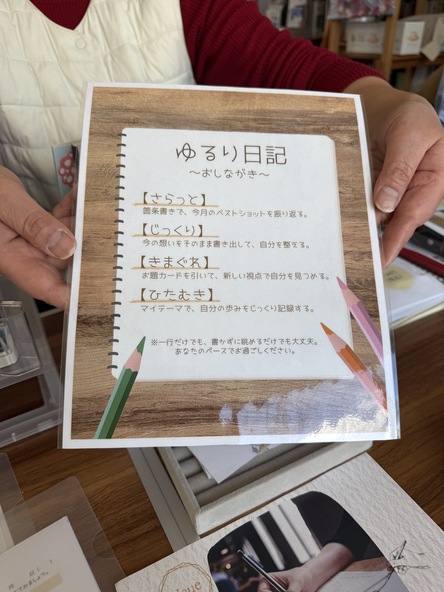 ゆるり日記
～おしながき～
【さらっと】
箇条書きで、今月のベストショットを振り返る。
【じっくり】
今の想いをそのまま書き出して、自分を整える。
【きまぐれ】
お題カードを引いて、新しい視点で自分を見つめる。
【ひたむき】
マイテーマで、自分の歩みをじっくり記録する。
※一行だけでも、書かずに眺めるだけでも大丈夫。
あなたのペースでお過ごしください。